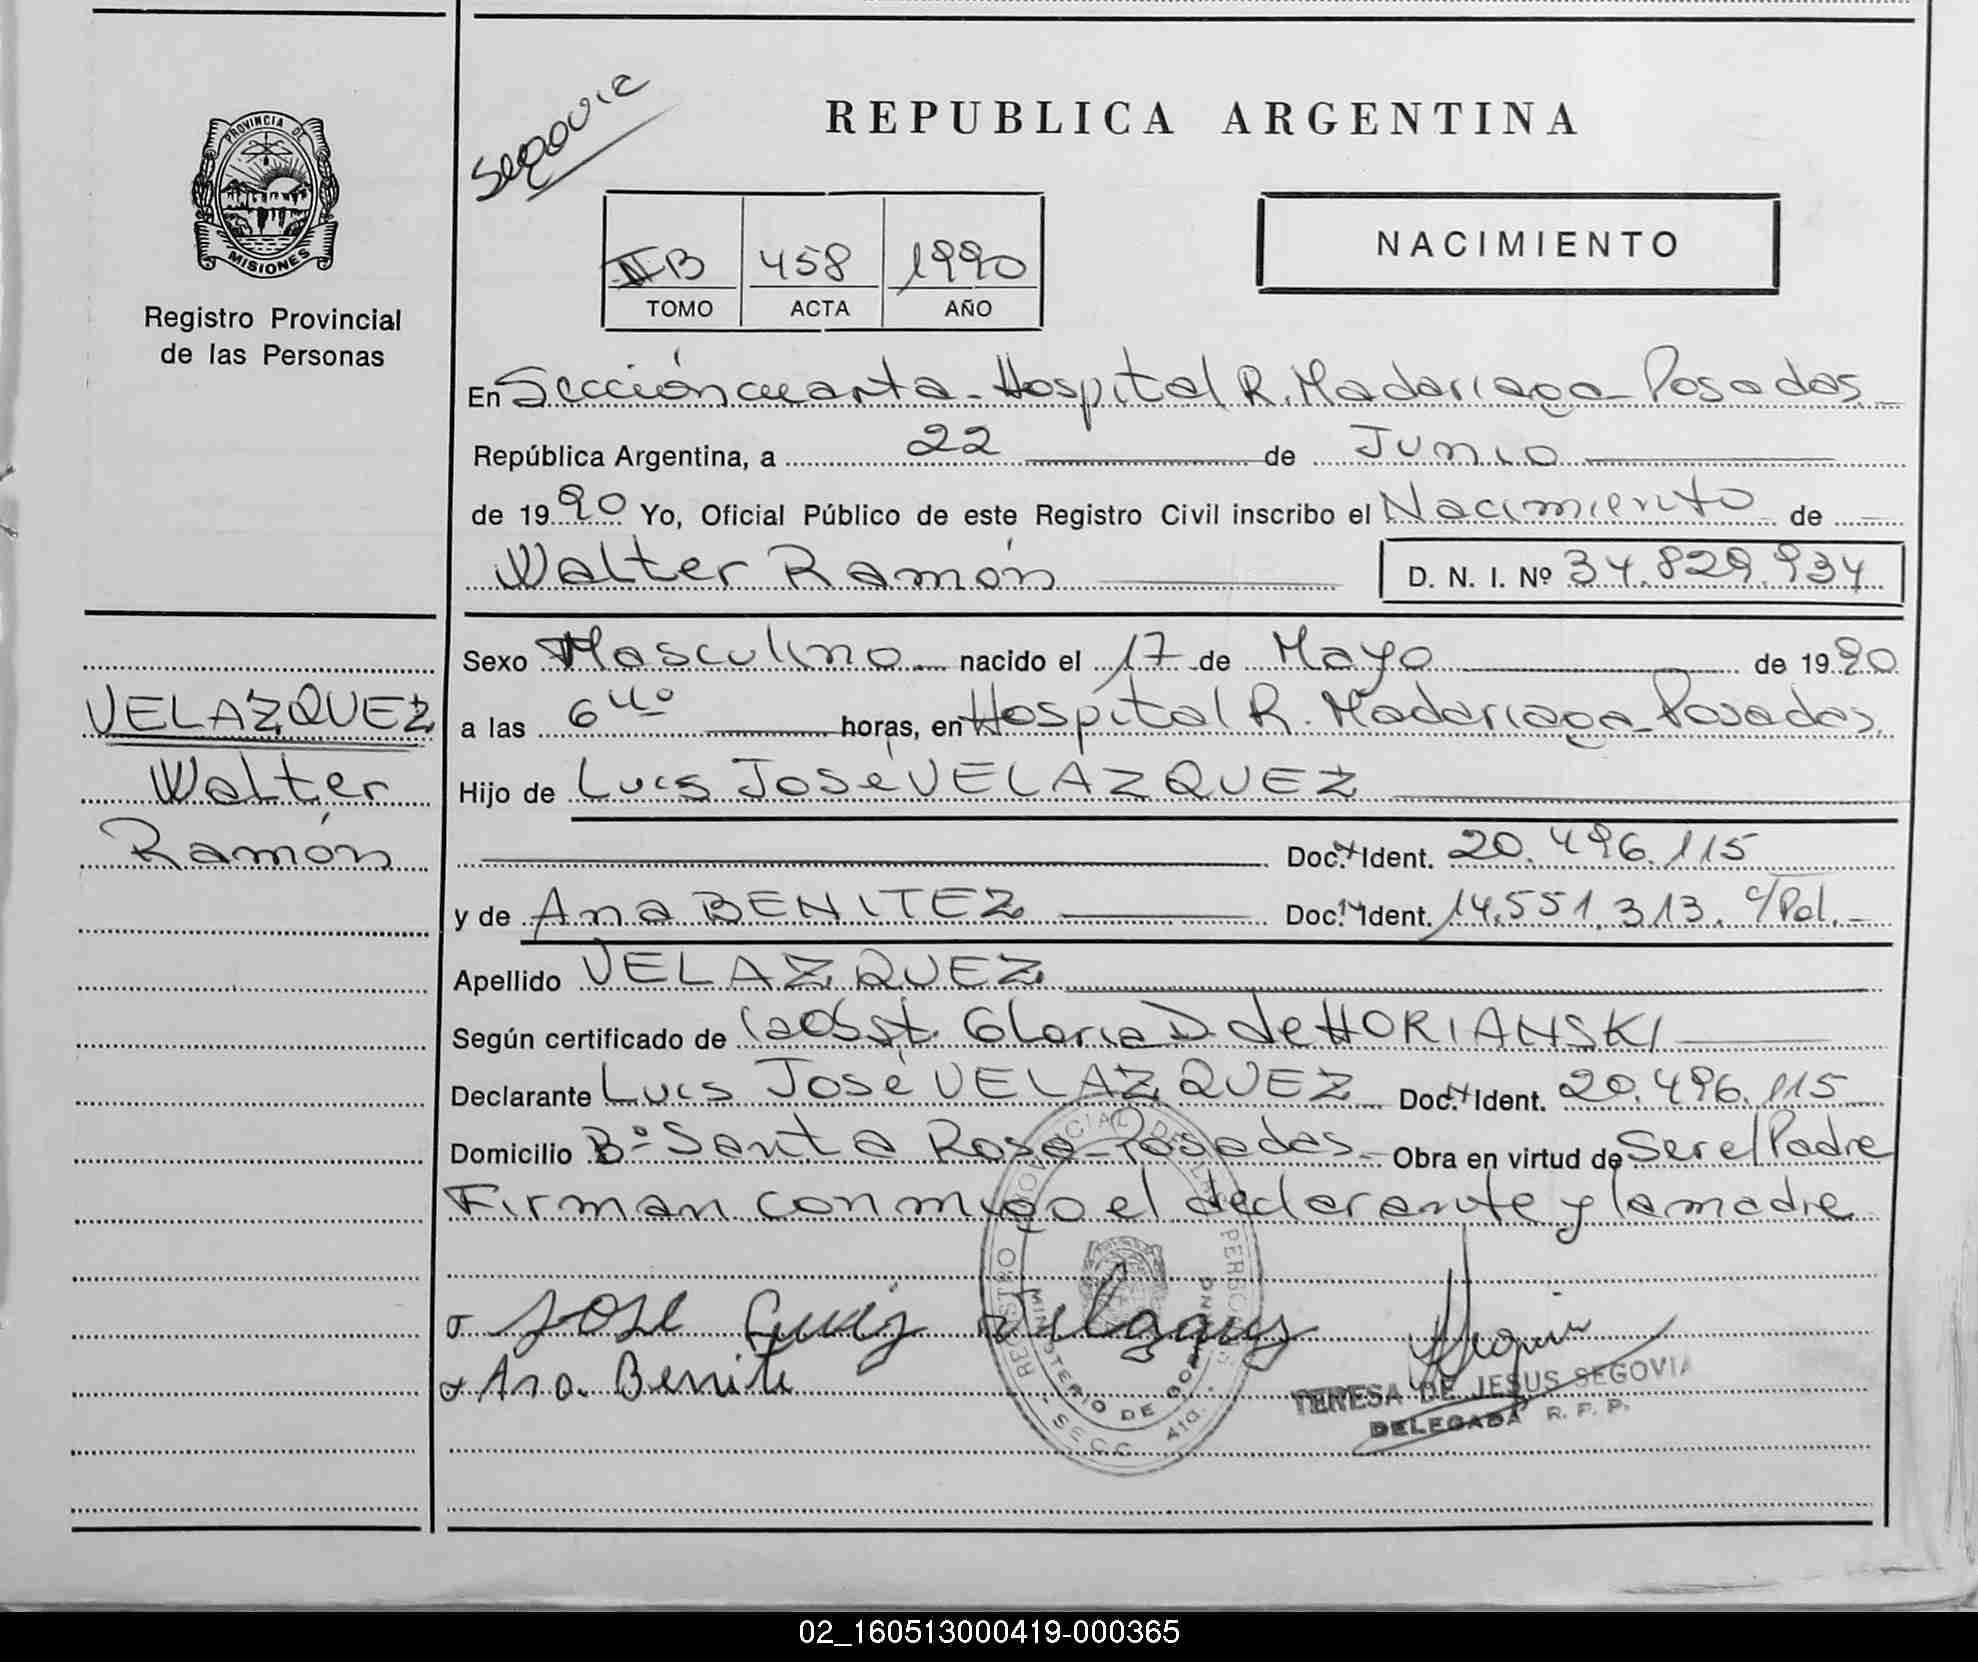 Segovia
REPUBLICA ARGENTINA
PROVINCIA DE
MISIONES
Registro Provincial
de las Personas
NACIMIENTO
II B 458 1990
TOMO ACTA AÑO
En Sección cuarta - Hospital R. Madariaga - Posadas
República Argentina, a 22 de Junio
de 1990 Yo, Oficial Público de este Registro Civil inscribo el Nacimiento de
Walter Ramón D. N. I. Nº 34.829.934
VELAZQUEZ
Walter
Ramón
Sexo Masculino nacido el 17 de Mayo de 1990
a las 6 40 horas, en Hospital R. Madariaga - Posadas.
Hijo de Luis José VELAZQUEZ
Doc. Ident. 20.496.115
y de Ana BENITEZ Doc. Ident. 14.551.313. c/Pol.
Apellido VELAZQUEZ
Según certificado de la Obst. Gloria D de HORIANSKI
Declarante Luis José VELAZQUEZ Doc. Ident. 20.496.115
Domicilio Bº Santa Rosa - Posadas - Obra en virtud de Ser el Padre
Firman conmigo el declarante y la madre
REGISTRO PROVINCIAL DE LAS PERSONAS
MINISTERIO DE GOBIERNO
SECC. 4ta.
José Luis
Ana Benite
TERESA DE JESUS SEGOVIA
DELEGADA R. P. P.
02_160513000419-000365